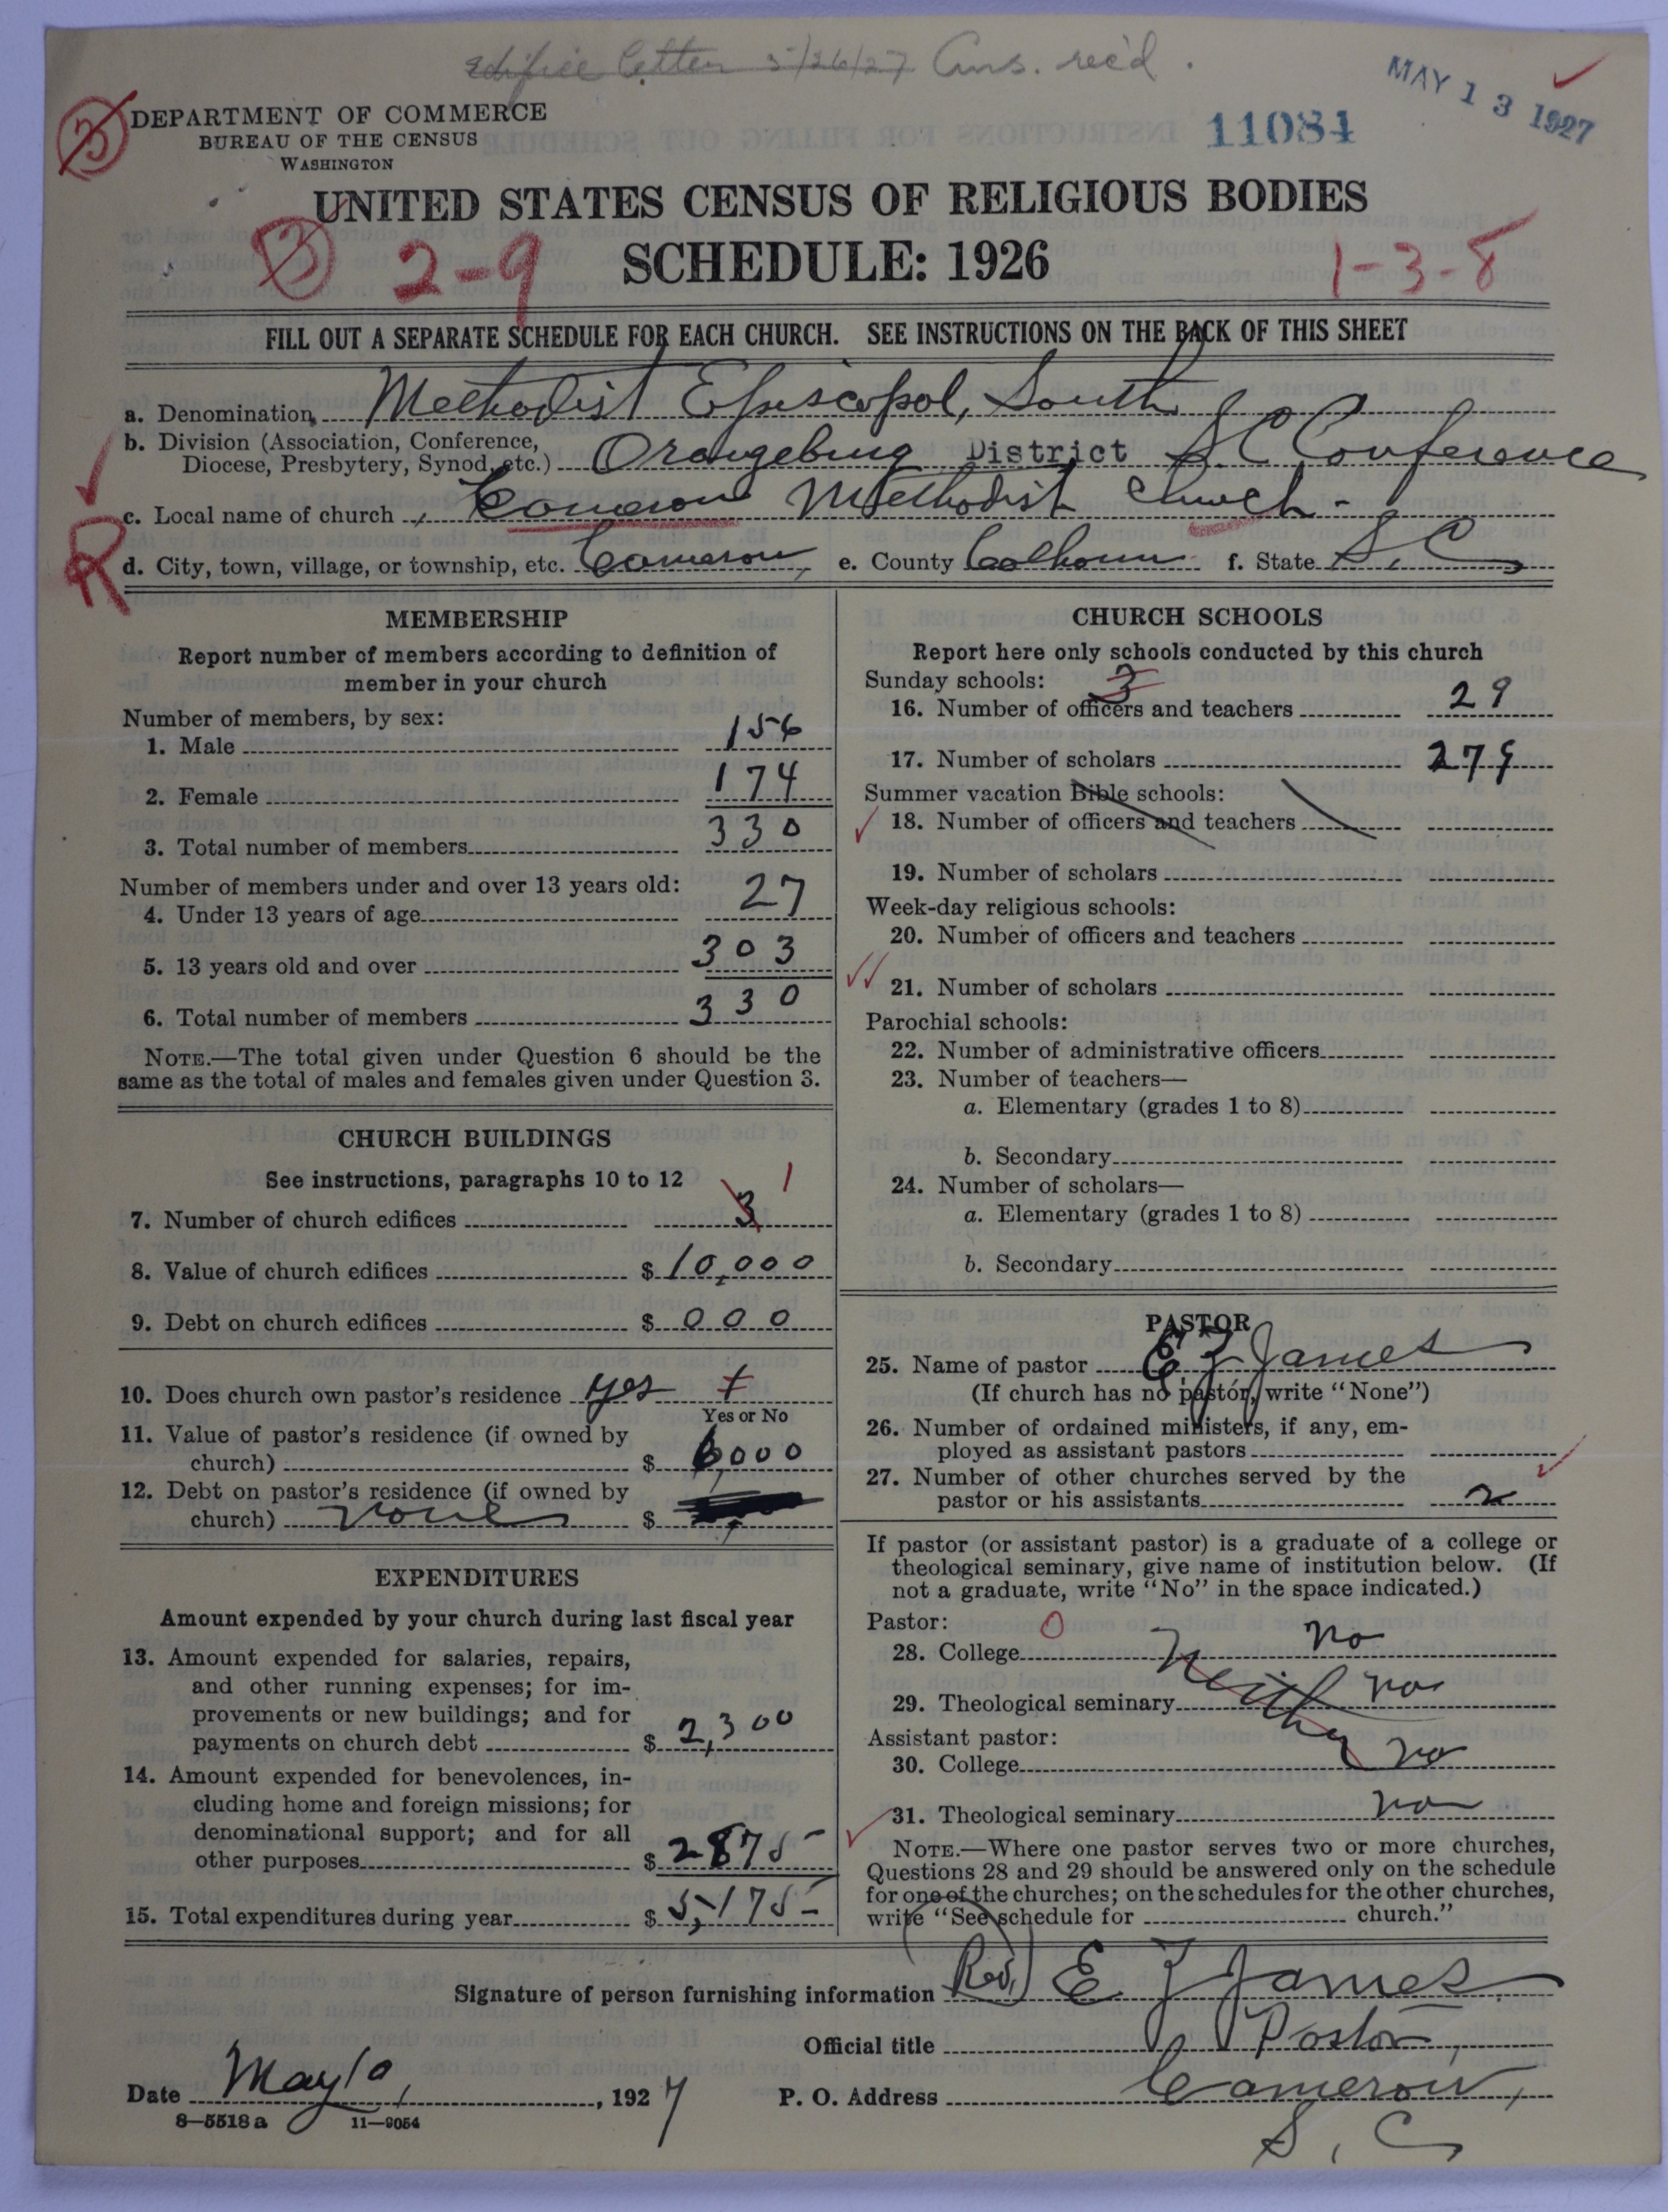 Edifice letter 5/26/27 Ans. rec'd.
MAY 13 1927
3
DEPARTMENT OF COMMERCE
BUREAU OF THE CENSUS
WASHINGTON
11084
UNITED STATES CENSUS OF RELIGIOUS BODIES
SCHEDULE: 1926
2-9
1-3-8
FILL OUT A SEPARATE SCHEDULE FOR EACH CHURCH. SEE INSTRUCTIONS ON THE BACK OF THIS SHEET
a. Denomination, Methodist Episcopol, South
b. Division (Association, Conference,
Diocese, Presbytery, Synod, etc.) Orangeburg District S.C Conference
c. Local name of church, Cameron Methodist Church -
R
d. City, town, village, or township, etc. Cameron, e. County Calhoun f. State S. C
MEMBERSHIP
Report number of members according to definition of
member in your church
Number of members, by sex:
1. Male 156
2. Female 174
3. Total number of members 330
Number of members under and over 13 years old:
4. Under 13 years of age 27
5. 13 years old and over 303
6. Total number of members 330
NOTE.—The total given under Question 6 should be the
same as the total of males and females given under Question 3.
CHURCH BUILDINGS
See instructions, paragraphs 10 to 12
7. Number of church edifices 3 1
8. Value of church edifices $ 10,000
9. Debt on church edifices $ 000
10. Does church own pastor's residence yes
Yes or No
11. Value of pastor's residence (if owned by
church) $ 6,000
12. Debt on pastor's residence (if owned by
church) none $
EXPENDITURES
Amount expended by your church during last fiscal year
13. Amount expended for salaries, repairs,
and other running expenses; for im-
provements or new buildings; and for
payments on church debt $ 2,300
14. Amount expended for benevolences, in-
cluding home and foreign missions; for
denominational support; and for all
other purposes $ 2875-
15. Total expenditures during year $ 5,175-
CHURCH SCHOOLS
Report here only schools conducted by this church
Sunday schools: 3
16. Number of officers and teachers 29
17. Number of scholars 279
Summer vacation Bible schools:
18. Number of officers and teachers
19. Number of scholars
Week-day religious schools:
20. Number of officers and teachers
21. Number of scholars
Parochial schools:
22. Number of administrative officers
23. Number of teachers—
a. Elementary (grades 1 to 8)
b. Secondary
24. Number of scholars—
a. Elementary (grades 1 to 8)
b. Secondary
PASTOR
25. Name of pastor E Z James
(If church has no pastor, write "None")
26. Number of ordained ministers, if any, em-
ployed as assistant pastors
27. Number of other churches served by the
pastor or his assistants 2
If pastor (or assistant pastor) is a graduate of a college or
theological seminary, give name of institution below. (If
not a graduate, write "No" in the space indicated.)
Pastor: 0
28. College no
Neither
29. Theological seminary no
Assistant pastor:
30. College no
31. Theological seminary no
NOTE.—Where one pastor serves two or more churches,
Questions 28 and 29 should be answered only on the schedule
for one of the churches; on the schedules for the other churches,
write "See schedule for church."
Signature of person furnishing information (Rev.) E Z James
Official title Pastor,
Date May 10, 1927 P. O. Address Cameron,
8—5518a 11—9054
S. C